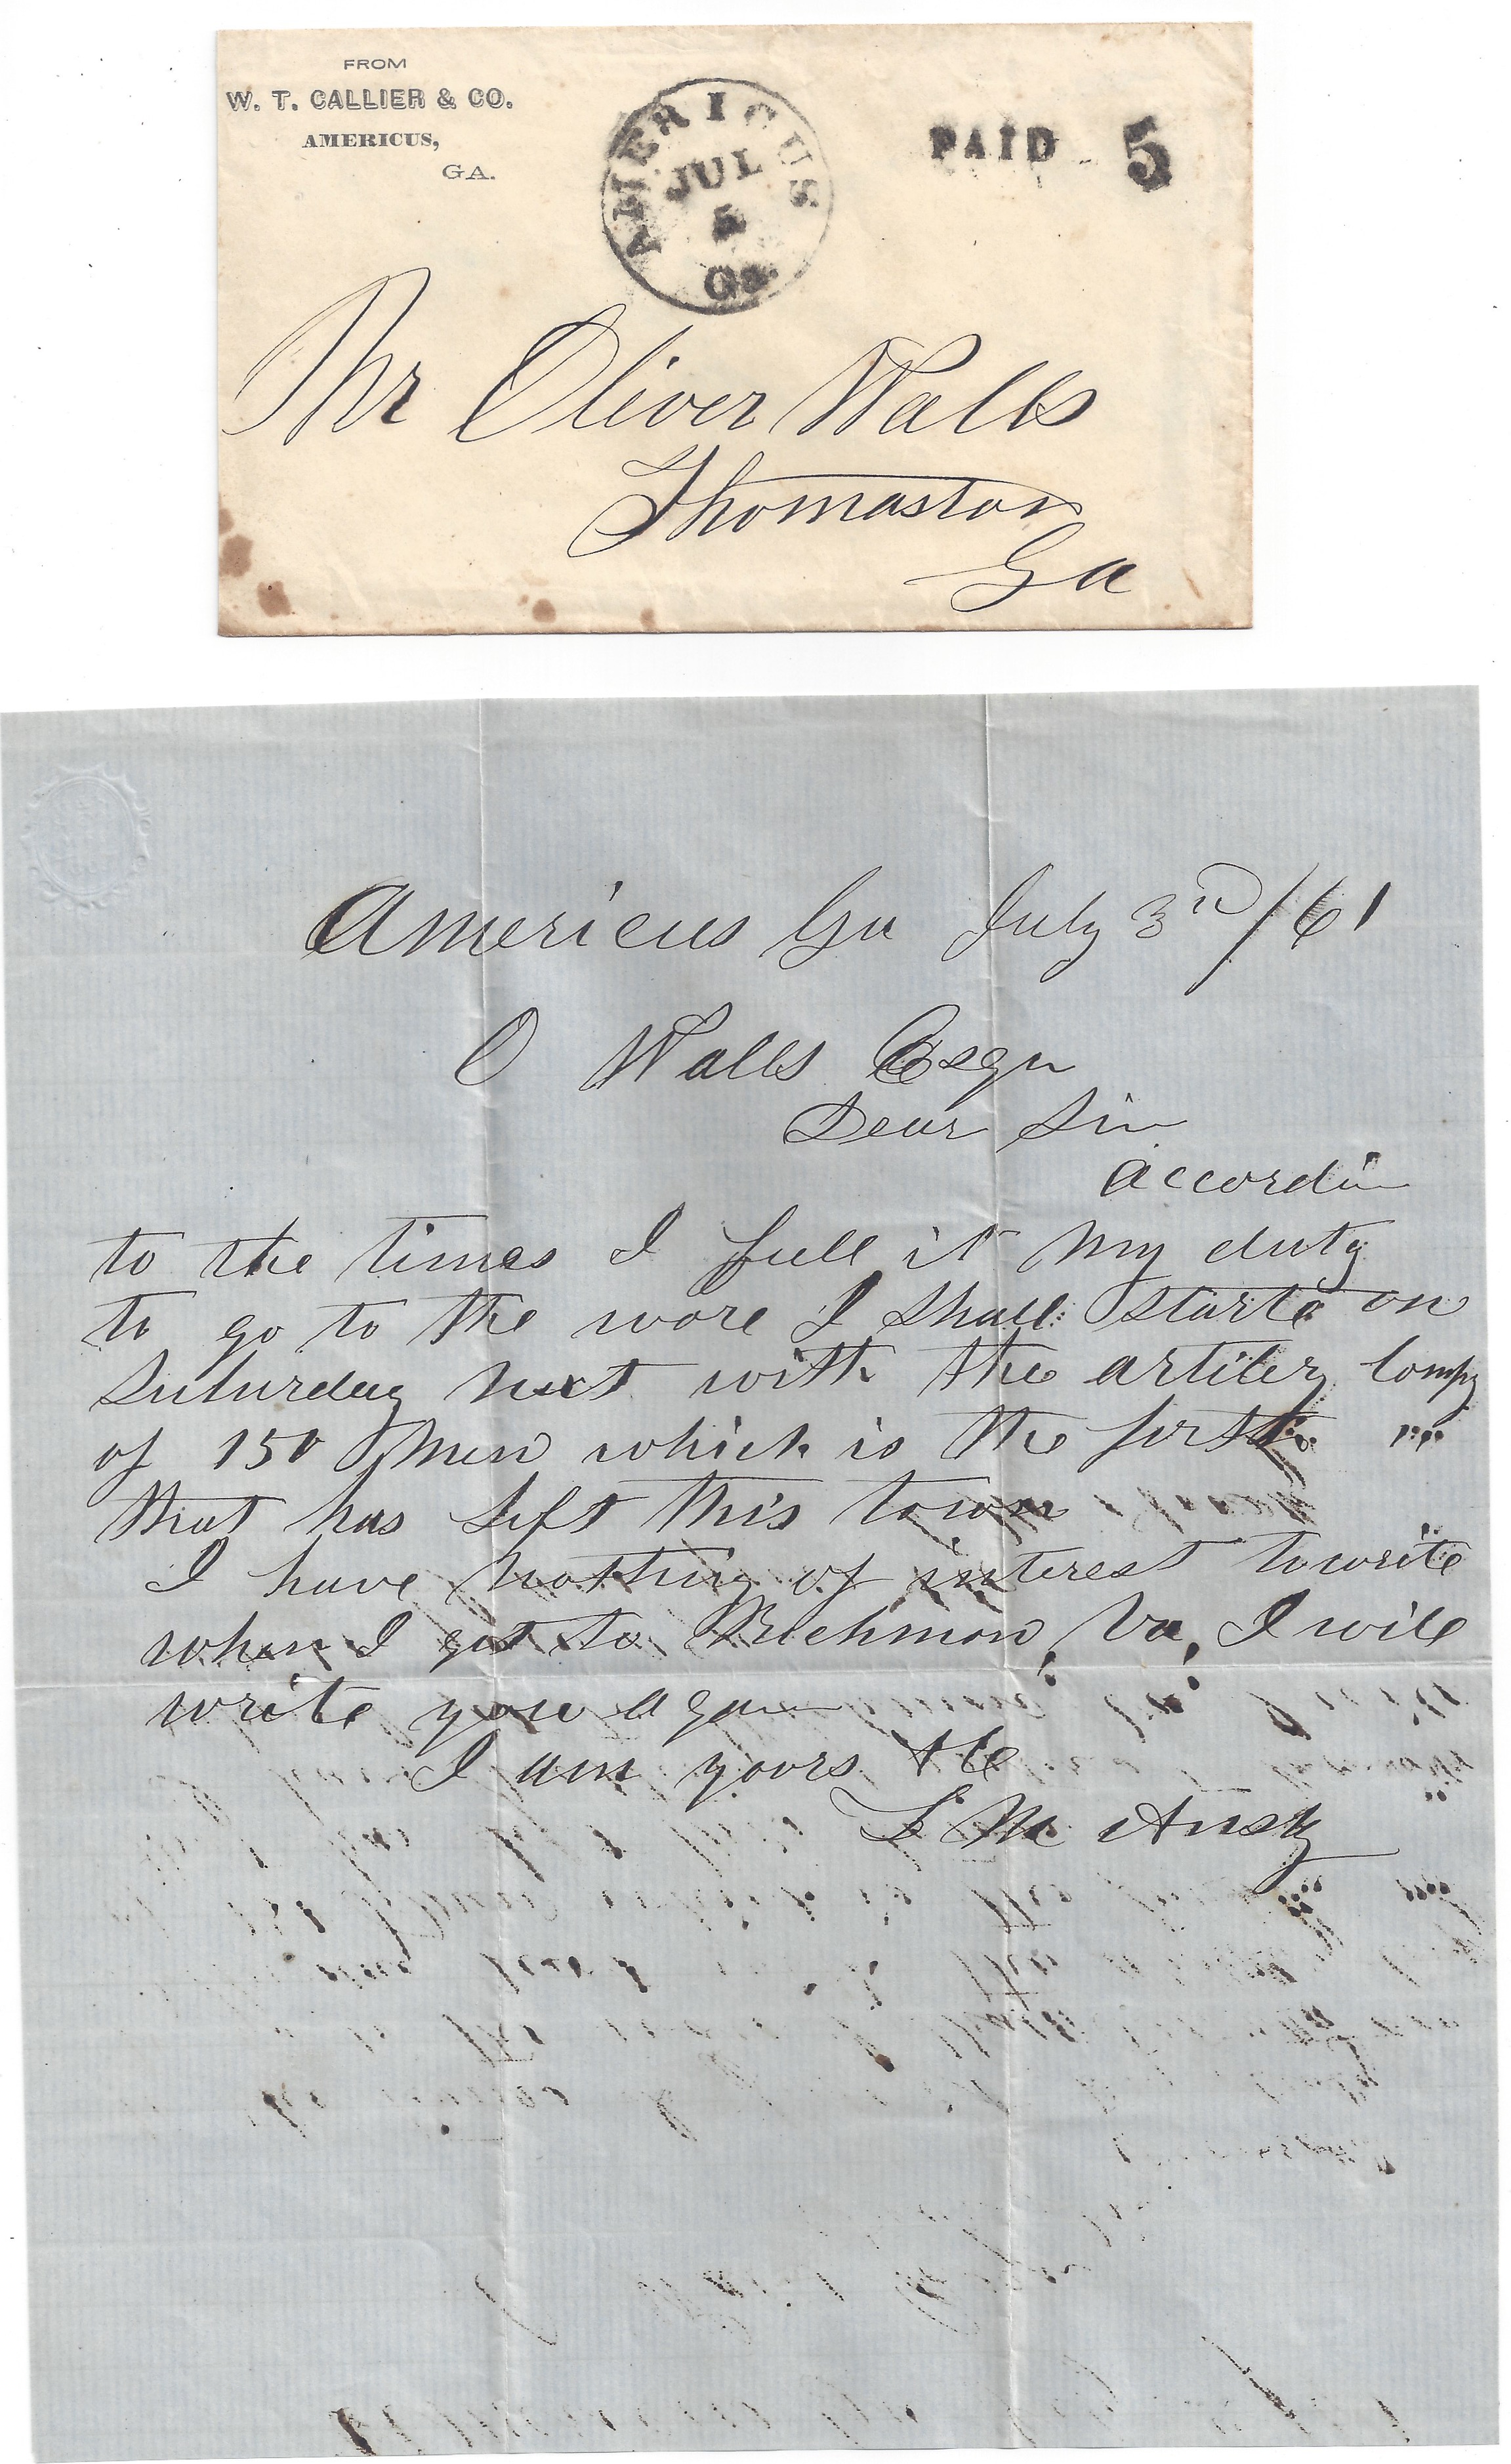 FROM
W. T. CALLIER & CO.
AMERICUS,
GA.
AMERICUS
JUL
5
Ga.
PAID 5
Mr Oliver Walls
Thomaston
Ga
Americus Ga July 3rd /61
O Walls Esqr
Dear Sir
accordin
to the times I full it my duty
to go to the wore I shall starte on
Suturday next with the artilery Compy
of 150 Men which is the first
that has left this town
I have nothing of interest to write
when I get to Richmon Va, I will
write you again
I am yours &C